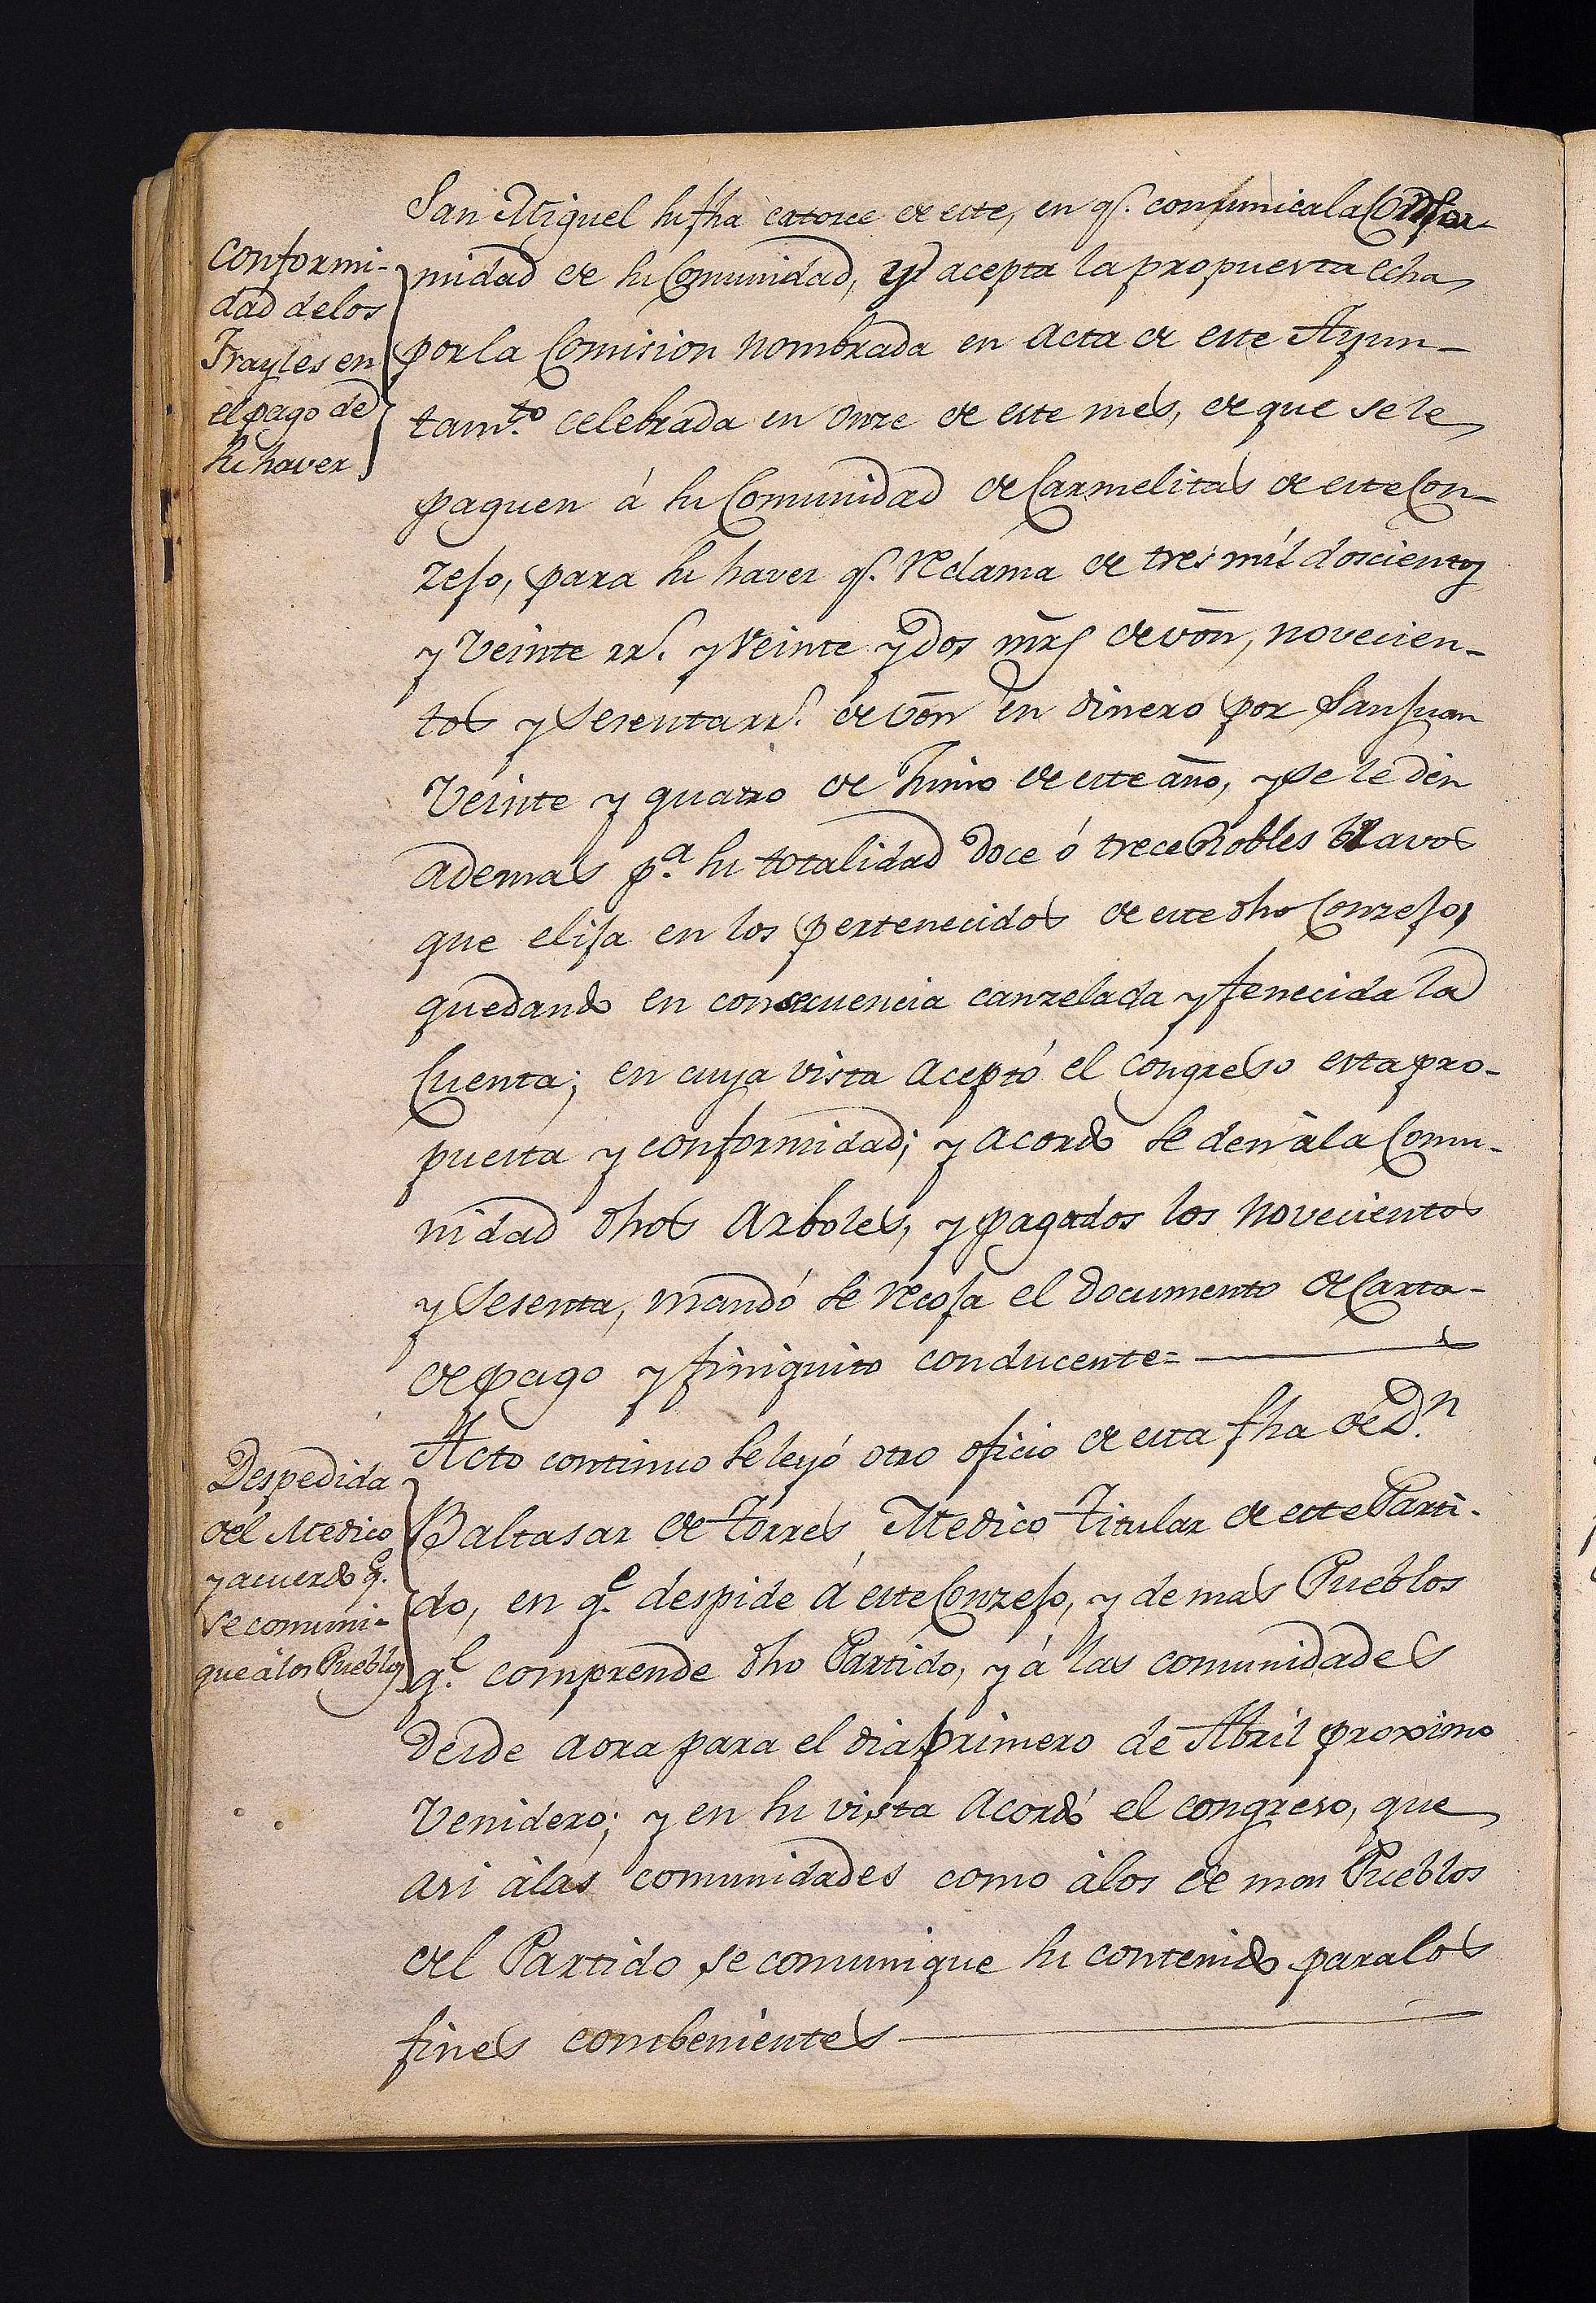 San Miguel su fha catorce de este, en q.e comunica la Confor-
midad de su Comunidad, y acepta la propuesta echa
por la Comision nombrada en Acta de este Ayun-
tam.to celebrada en Onze de este mes, de que se le
paguen á su Comunidad de Carmelitas de este Con-
zejo, para su haver q.e reclama de tres mil doscientos
y Veinte rr.s y Veinte y dos mrs de von, novecien-
tos y Sesenta rr.s de von en dinero por San Juan
Veinte y quatro de Junio de este año, y se le den
ademas p.a su totalidad doce ó trece Robles bravos
que elija en los pertenecidos de este dho Conzejo,
quedando en consecuencia canzelada y fenecida la
Cuenta; en cuya vista aceptó el Congreso esta pro-
puesta y conformidad; y acordo se den à la Comu-
nidad dhos Arboles, y pagados los novecientos
y Sesenta, mandó se recoja el documento de Carta-
de pago y finiquito conducente=
Conformi-
dad de los
Frayles en
el pago de
su haver
Acto continuo se leyó otro oficio de esta fha de D.n
Baltasar de Torres Medico Titular de este Parti-
do, en q.e despide á este Conzejo, y demas Pueblos
q.e comprende dho Partido, y á las comunidades
desde aora para el dia primero de Abril proximo
Venidero; y en su vista Acordó el congreso, que
asi à las comunidades como à los de mas Pueblos
del Partido se comunique su contenido para los
fines combenientes
Despedida
del Medico
y acuerdo q.e
se comuni-
que à los Pueblos